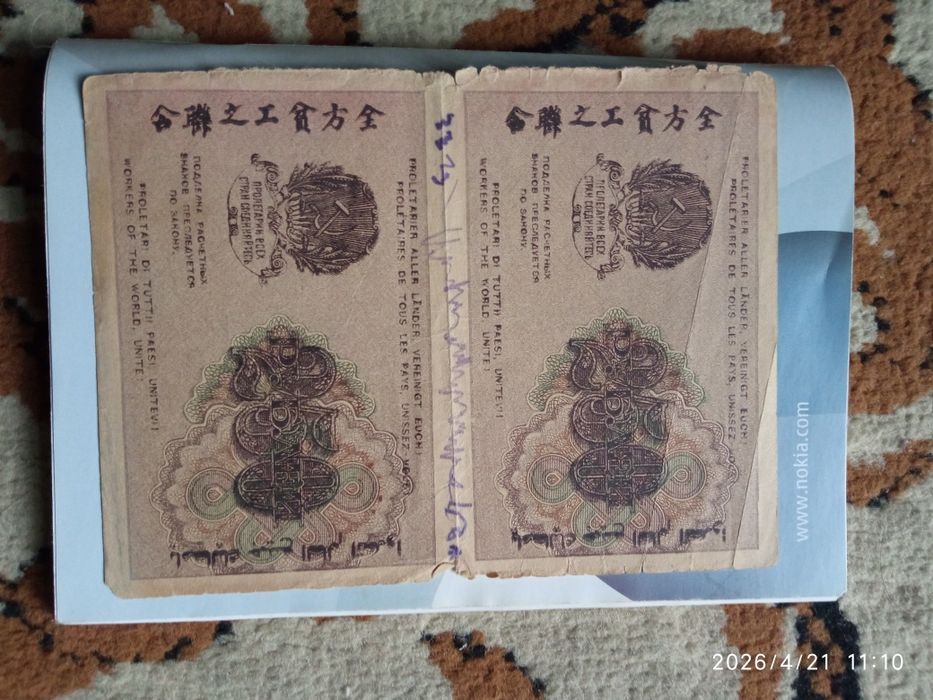 全方貧工之聯合
PROLETARIER ALLER LÄNDER, VEREINIGT EUCH!
PROLÉTAIRES DE TOUS LES PAYS, UNISSEZ-VOUS
ПРОЛЕТАРИИ ВСЕХ
СТРАН СОЕДИНЯЙТЕСЬ
250
ПОДДЕЛКА РАСЧЕТНЫХ
ЗНАКОВ ПРЕСЛЕДУЕТСЯ
ПО ЗАКОНУ.
PROLETARI DI TUTTI I PAESI, UNITEVI!
WORKERS OF THE WORLD, UNITE!
全方貧工之聯合
PROLETARIER ALLER LÄNDER, VEREINIGT EUCH!
PROLÉTAIRES DE TOUS LES PAYS, UNISSEZ-
ПРОЛЕТАРИИ ВСЕХ
СТРАН СОЕДИНЯЙТЕСЬ
250
ПОДДЕЛКА РАСЧЕТНЫХ
ЗНАКОВ ПРЕСЛЕДУЕТСЯ
ПО ЗАКОНУ.
PROLETARI DI TUTTI I PAESI, UNITEVI!
WORKERS OF THE WORLD, UNITE!
www.nokia.com
2026/4/21 11:10